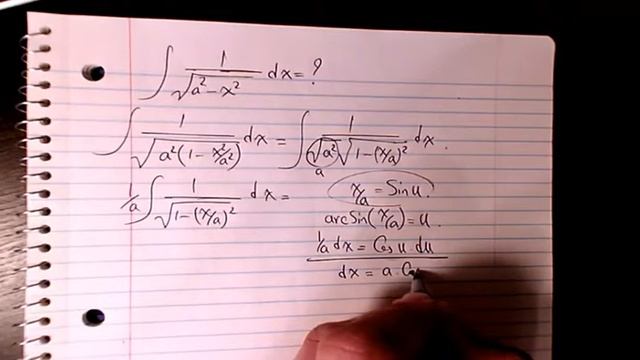 ∫ 1/√(a² - x²) dx = ?
∫ 1/√(a²(1 - x²/a²)) dx = ∫ 1/(√a² √(1 - (x/a)²)) dx.
a
1/a ∫ 1/√(1 - (x/a)²) dx =
x/a = Sin u.
arcSin(x/a) = u.
1/a dx = Cos u. du
dx = a. Co